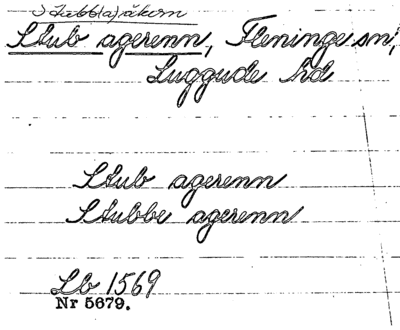 Stubb(a)åkern
Stub agerenn, Fleninge sn,
Luggude hd
Stub agerenn
Stubbe agerenn
Lb 1569
Nr 5679.